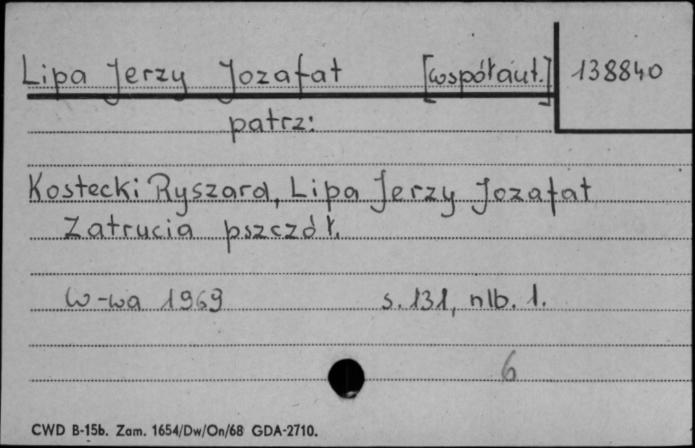 Lipa Jerzy Jozafat [współaut.] 138840
patrz:
Kostecki Ryszard, Lipa Jerzy Jozafat
Zatrucia pszczół.
W-wa 1969 s. 131, nlb. 1.
6
CWD B-15b. Zam. 1654/Dw/On/68 GDA-2710.